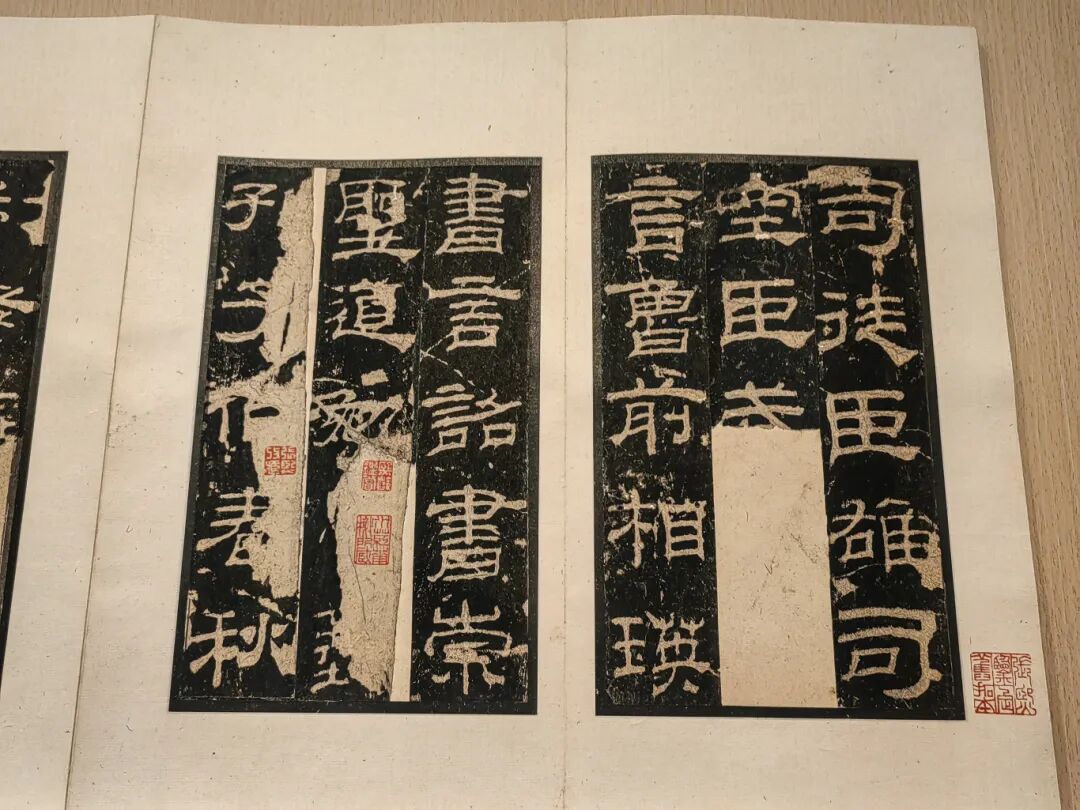 司徒臣雄司
空臣戒
言魯前相瑛
書言詔書崇
聖道勉
子作春秋